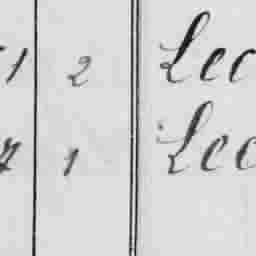 1 2 Lec
7 1 Lec